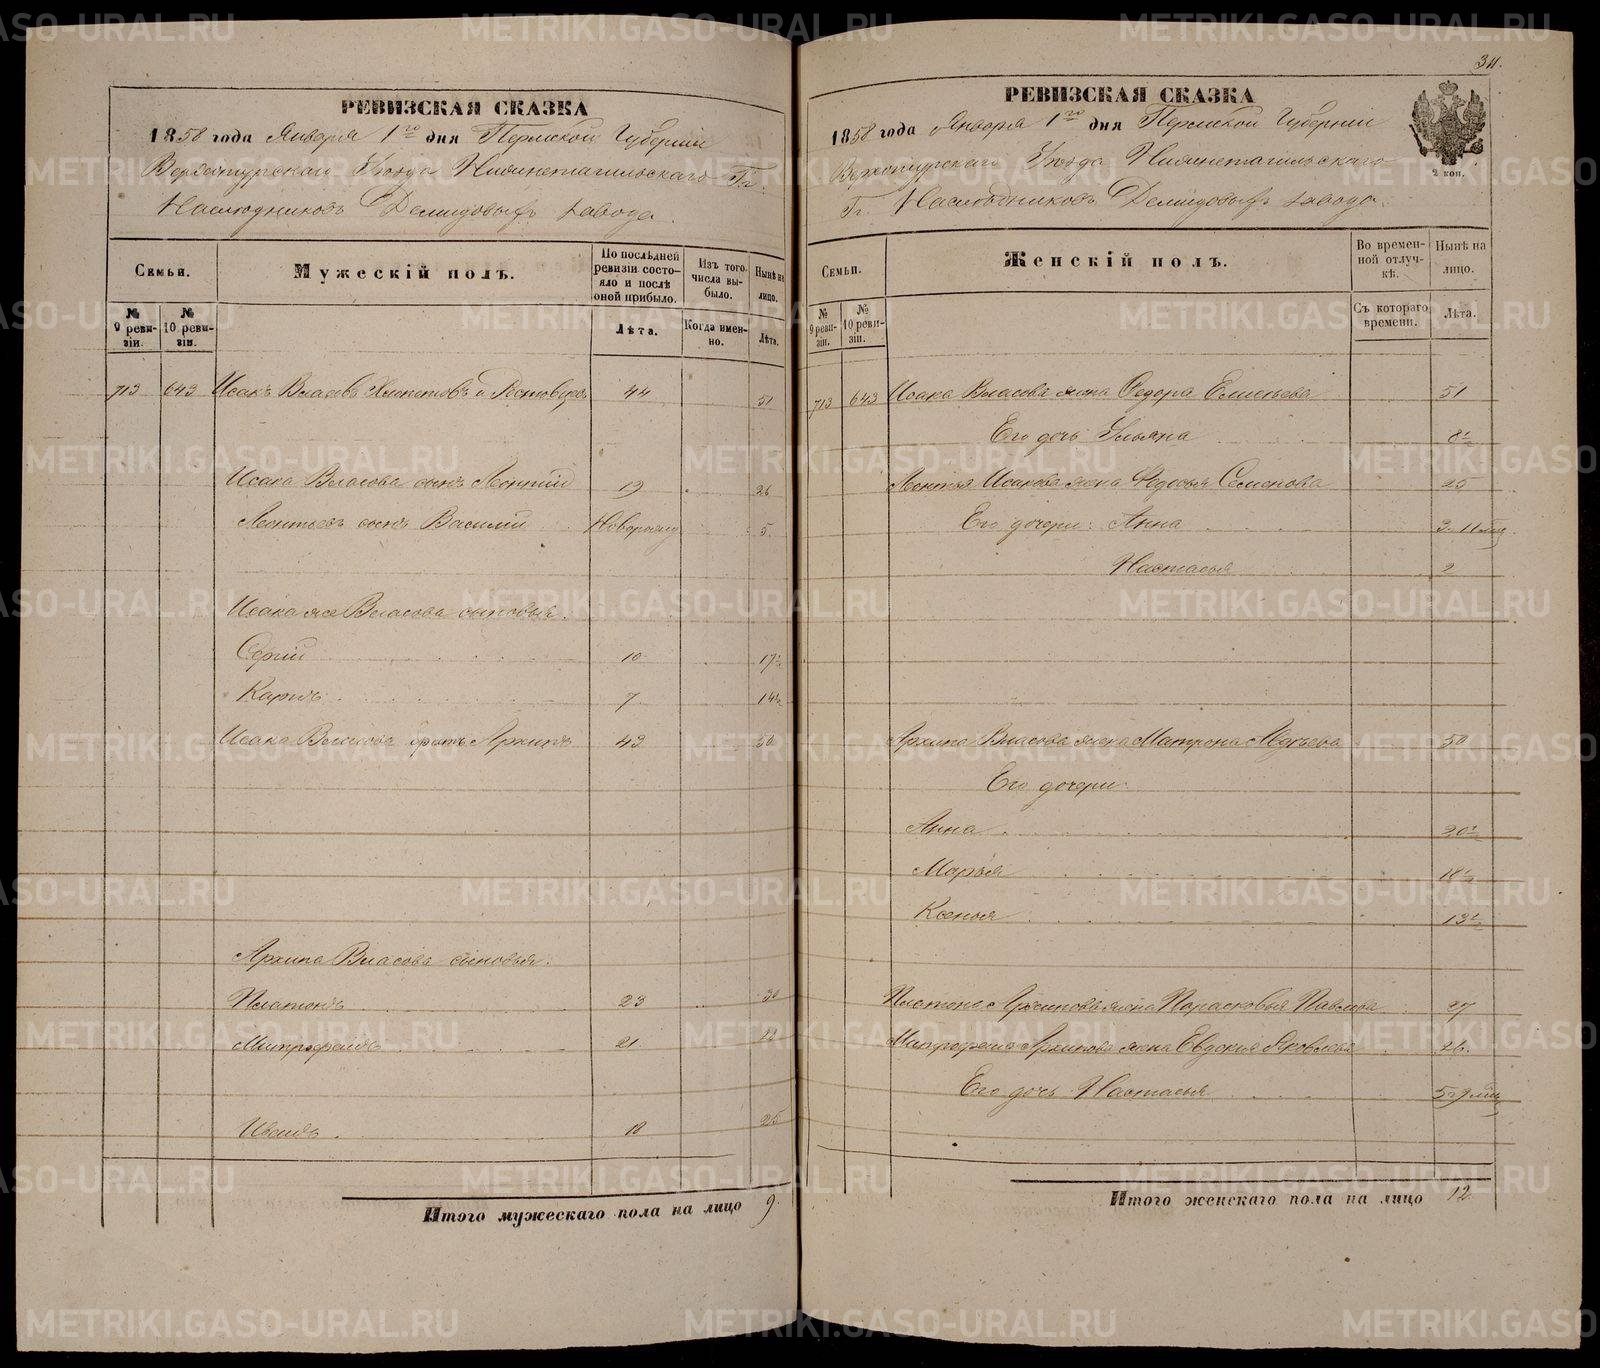 34.
РЕВИЗСКАЯ СКАЗКА
1858 года Января 1го дня Пермской Губернiи
Верхотурскаго Уѣзда Нижнетагильскаго Гг.
Наслѣдниковъ Демидовыхъ завода.
Семьи.
Мужескiй полъ.
По послѣдней ревизiи состояло и послѣ оной прибыло.
Изъ того числа выбыло.
Нынѣ на лицо.
№ 9 ревизiи.
№ 10 ревизiи.
Лѣта.
Когда именно.
Лѣта.
713 643 Исакъ Власовъ 44 51
Исака Власова сынъ Леонтiй 19 26
Леонтьевъ сынъ Василiй Новорожд 5
Исака же Власова сыновья.
Сергiй 10 17½
Карпъ 7 14½
Исака Власова братъ Архипъ 43 50
Архипа Власова сыновья:
Платонъ 23 30
Митрофанъ 21 28
Иванъ 18 25
Итого мужескаго пола на лицо 9.
РЕВИЗСКАЯ СКАЗКА
1858 года Января 1го дня Пермской Губернiи
2 коп.
Верхотурскаго Уѣзда Нижнетагильскаго
Гг. Наслѣдниковъ Демидовыхъ завода.
Семьи.
Женскiй полъ.
Во временной отлучкѣ.
Нынѣ на лицо.
№ 9 ревизiи.
№ 10 ревизiи.
Съ котораго времени.
Лѣта.
713 643 Исака Власова жена Федора Елисѣева 51
Его дочь Ульяна 8½
Леонтья Исакова жена Федосья Семенова 25
Его дочери: Анна 3. 11 мѣс
Настасья 2
Архипа Власова жена Матрона 50
Его дочери:
Анна 20½
Марья 18½
Ксенья 13½
Платона Архипова жена Парасковья Павлова 27
Митрофана Архипова жена Евдокья Яковлева 26.
Его дочь Настасья 5. 9 мѣс
Итого женскаго пола на лицо 12
METRIKI.GASO-URAL.RU